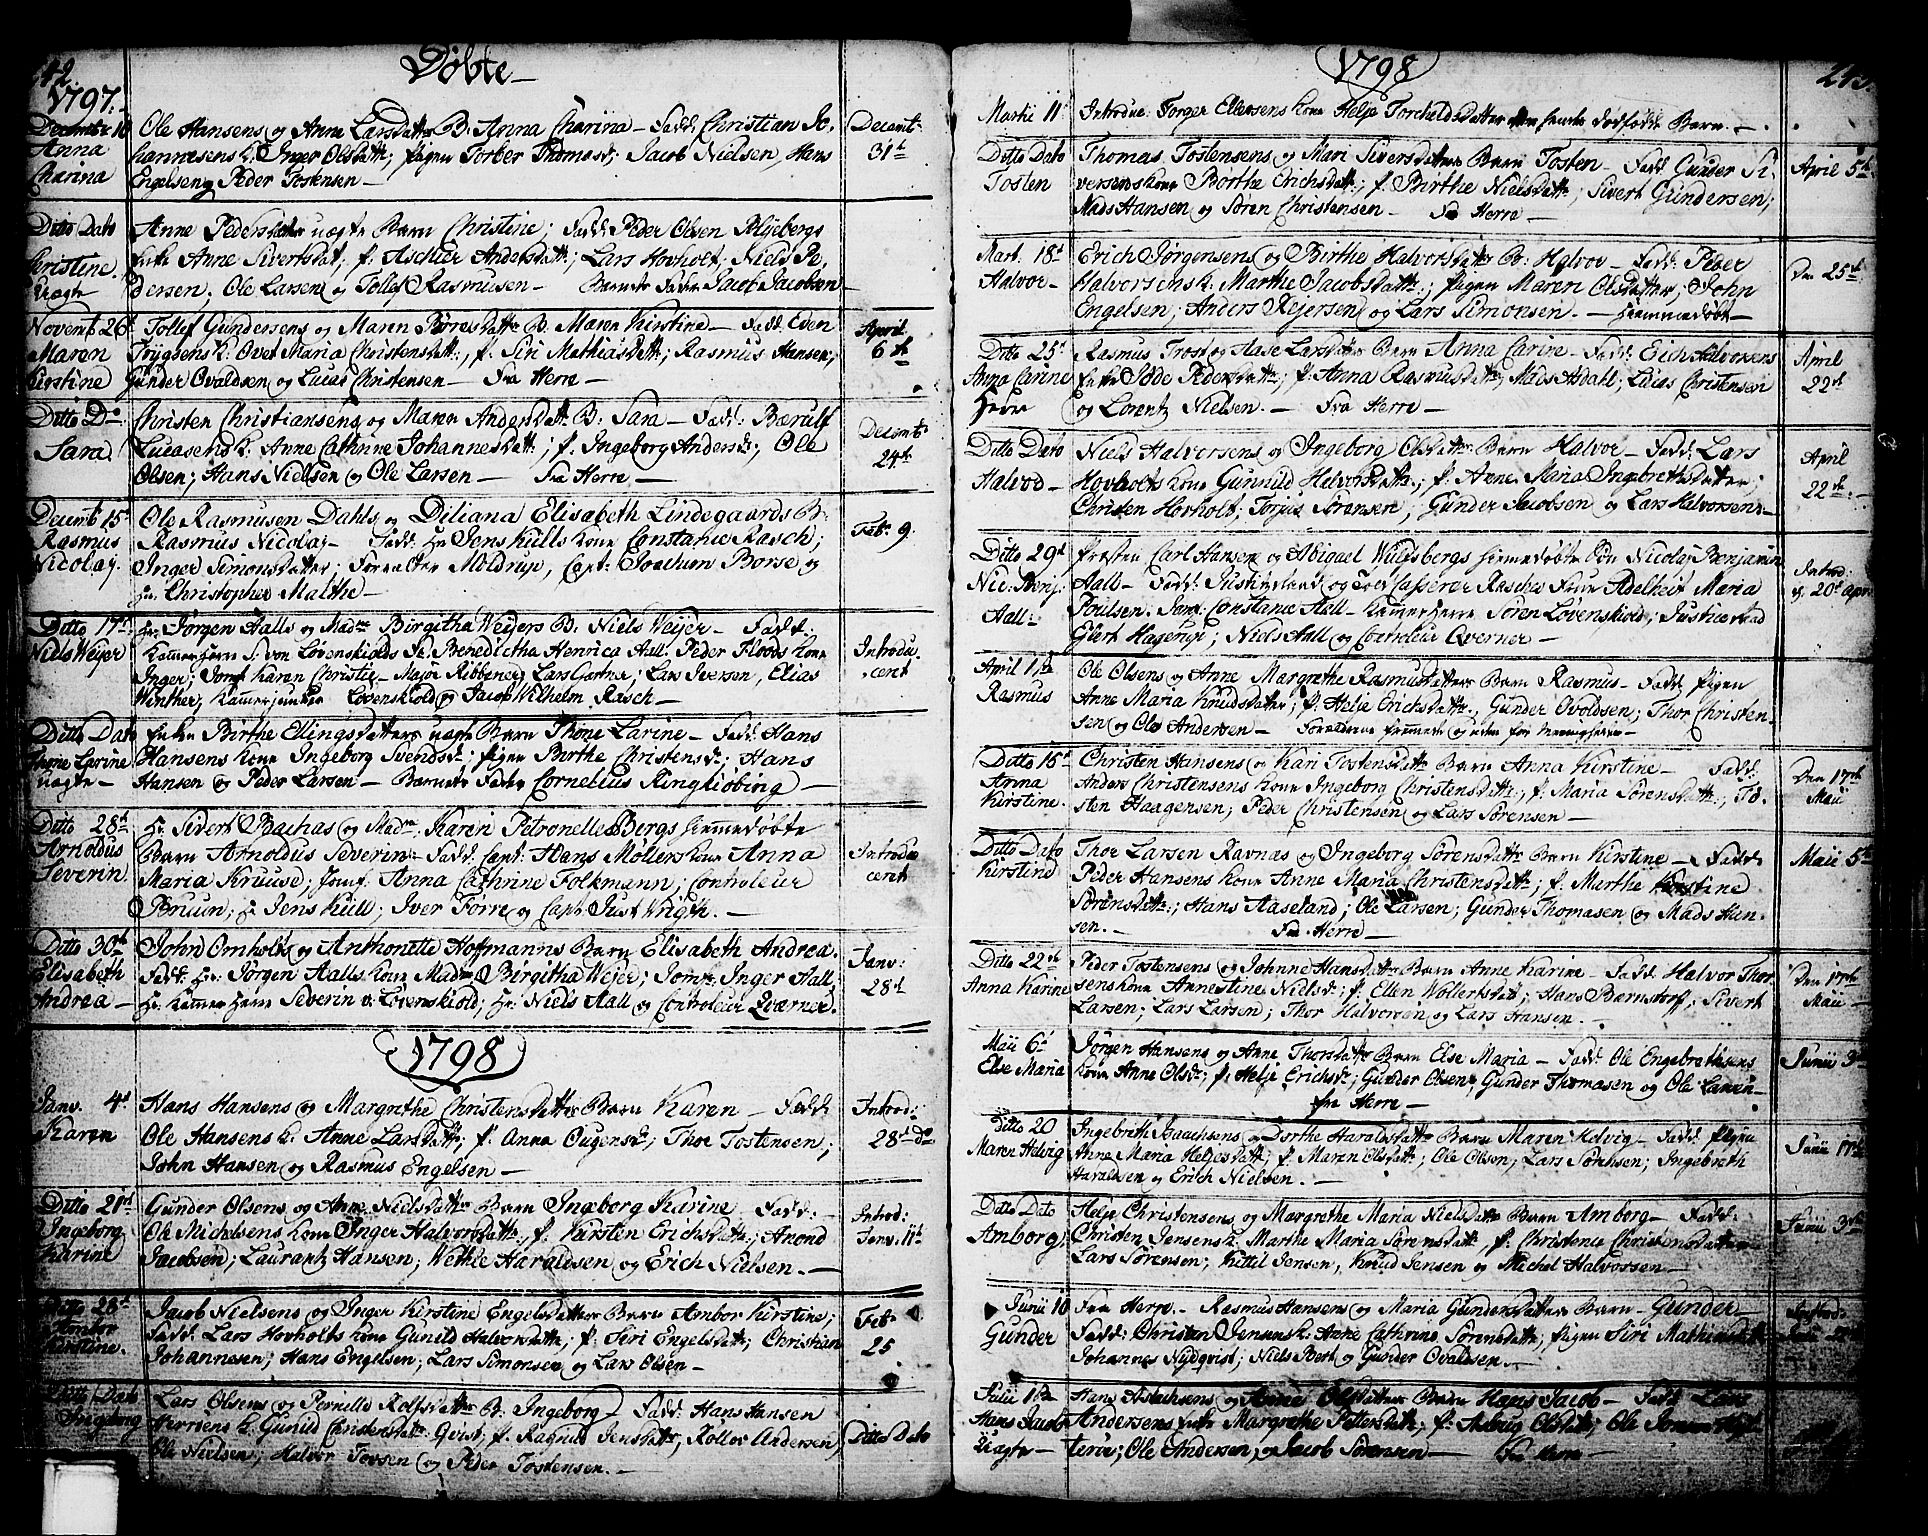 Døbte
1797.
Decembr 10 Anna Charina
Ole Hansens og Anne Larsdatter B. Anna Charina – Fadd: Christian Jo-
hannesens k. Inger Olsdatt:; Pigen Torber Thomasd; Jacob Nielsen, Hans
Engelsen og Peder Tostensen –
Decemb: 31te
Ditto Dato Christine Uægte
Anne Pedersdatters uægte Barn Christine; Fadd: Peder Olsen
Enke Anne Sivertsdat; p. Aschier Andersdatt; Lars Hovholt; Niels Pe,
dersen, Ole Larsen og Tollef Rasmussen – Barnets Fader Jacob Jacobsen –
Novemb 26d Maren Kirstine
Tollef Gundersens og Maren B. Maren Kirstine – Fadd: Even
Trygsens k. Maria Christensdatt:, p. Siri Mathiasdatt; Rasmus Hansen,
Gunder Ovaldsen og Lucas Christensen – Fra Herre –
April 6te
Ditto Do Sara
Christen Christiansens og Maren Andersdatt B: Sara – Fadd: Bærulf
Lucasens k. Anne Cathrine Johannesdatt; p. Ingeborg Andersd; Ole
Olsen; Hans Nielsen og Ole Larsen – Fra Herre –
Decemb: 24de
Decemb 15d Rasmus Nicolay.
Ole Rasmusen Dahls og Diliana Elisabeth Lindegaards B:
Rasmus Nicolaj – Fadd: Hr Jens Kulls kone Constance Rasch;
Inger Simonsdatter; Moldrup, Capt: Joachum Borse og
Hr Christopher Malthe –
Feb: 9
Ditto 17d Niels Weyer
Hr Jørgen Aalls og Madm Birgitha Weyers B. Niels Weyer – Fadd:
Kammerherre S. von Løvenskiolds Fr. Benedictha Henrica Aall. Peder Floods kone
Inger; Jomf Karen Christie – Major Ribbener, Lars Gartner; Lars Iversen, Elias
Winther, Kammerjunker Løvenskiold og Jacob Wilhelm Rasch –
Introdu, ceret
Ditto Dato Thone Larine Uægte –
Enken Birthe Ellingsdatters uægte Barn Thone Larine – Fadd: Hans
Hansens kone Ingeborg Svendsd; Pigen Birthe Christensd; Hans
Hansen og Peder Larsen – Barnets Fader Cornelius Ringkiøbing –
Ditto 28d Arnoldus Severin
Hr Sivert Bachas og Madm Karen Petronelle Bergs hiemmedøbte
Barn Arnoldus Severin – Fadd: Capt: Hans Møllers kone Anna
Maria Kruuse; Jomf: Anna Cathrine Folkmann; Controleur
Bruun; Hr Jens Kull; Iver Førre og Capt. Just Wright. –
Introdu, ceret
Ditto 30te Elisabeth Andrea –
John Omholt og Anthonette Hoffmanns Barn Elisabeth Andrea.
Fadd: Hr: Jørgen Aalls kone Madm Birgitha Weyer; Jomfr Inger Aall,
Hr: Kammerherre Severin v. Løvenskiold; Hr: Niels Aall og Controleur Qværner.
Janv: 28d
1798
Janv. 4d Karen
Hans Hansens og Margrethe Christensdatters Barn Karen – Fadd:
Ole Hansens k. Anne Larsdatt; p. Anna Ougensd; Thor Tostensen;
John Hansen og Rasmus Engelsen –
Introd: 28d do
Ditto 21de Ingeborg Karine
Gunder Olsens og Anne Nielsdatters Barn Ingeborg Karine – Fadd:
Ole Michelsens kone Inger Halvorsdatt, p. Karsten Erichsdatt; Anond
Jacobsen; Laurantz Hansen, Wethle Haraldsen og Erich Nielsen. –
Introd: Janv. 11d
Ditto 28d Ambor Kirstine.
Jacob Nielsens og Inger Kirstine Engelsdatters Barn Ambor Kirstine;
Fadd: Lars Hovholts kone Gunild Halvorsdatt; p. Siri Engelsdatt; Christian
Johannesen; Hans Engelsen, Lars Simonsen og Lars Olsen –
Feb: 25
Ditto Dato Ingeborg
Lars Olsens og Pernelle Rolfsdatters B. Ingeborg – Fadd: Hans Hansen
k. Gunild Christensdatt: Qvist, p. Ragnild Jensdatt; Rollov Andersen
Ole Nielsen; Halvor Tovsen og Peder Tostensen. –
Ditto Dato
1798
Martii 11
Introdue: Torger Ellevsens kone Helje Torchildsdatter dødfødde Barn –
Ditto Dato Tosten
Thomas Tostensens og Mari Siversdatters Barn Tosten – Fadd: Gunder Si-
versens kone Børthe Erichsdatt:, p. Birthe Nielsdatt; Sivert Gundersen;
Mads Hansen og Søren Christensen – Fra Herre –
April 5te
Mart. 18d Halvor –
Erich Jørgensens og Birthe Halvorsdatters B: Halvor – Fadd: Peder
Halvorsens k: Marthe Jacobsdatt; Pigen Maren Olsdatter, John
Engelsen; Anders Rejersen og Lars Simonsen. – hiemmedøbt –
Den 25de
Ditto 25d Anna Carine Herre
Rasmus Trost og Aase Larsdatters Barn Anna Carine – Fadd: Erich Halvorsens
Enke Jøde Pedersdatt; p. Anna Rasmusdatt; Mads Asdahl; Lucas Christensen
og Lorentz Nielsen. – Fra Herre –
April 22de
Ditto Dato Halvor –
Niels Halvorsens og Ingeborg Olsdatters Barn Halvor – Fadd: Lars
Hovholts kone Gunnild Helvorsdatt; p. Anne Maria Ingebrethsdatter;
Christen Hovholt; Torjus Sørensen; Gunder Jacobsen og Lars Halvorsen –
April 22de –
Ditto 29d Nic: Benj: Aall:
Præsten Carl Hansen og Abigael Wulfsbergs hiemmedøbte Søn Nicolaj Benjamin
Aall – Fadd: Justitsraad og Told Casserer Rasches Frue Adelheit Maria
Poulsen. Jomf: Constance Aall – Kammerherre Søren Løvenskiold; Justicraad
Giert Hagerup; Niels Aall og Controleur Qverner –
Introd: d. 20de April
April 1ste Rasmus
Ole Olsens og Anne Margrethe Rasmusdatters Barn Rasmus – Fadd: Pigen
Anne Maria Knudsdatter; p. Helje Erichsdatt, Gunder Ovoldsen; Thor Christen-
sen og Ole Andersen – Forældrene fremmede og uden for Menigheden –
Ditto 15d Anna Kirstine.
Christen Hansens og Kari Tostensdatt Barn Anna Kirstine – Fadd:
Anders Christensens kone Ingeborg Christensdatt; p. Maria Sørensdatt; To-
sten Haagensen; Peder Christensen og Lars Sørensen –
Den 17de Maii
Ditto Dato Kirstine
Thor Larsen Ravnæs og Ingeborg Sørensdatt Barn Kirstine – Fadd
Peder Hansens kone Anne Maria Christensdatt; p. Marthe Kirstine
Sørensdatt; Hans Aaseland; Ole Larsen; Gunder Thomasen og Mads Han-
sen. – Fra Herre –
Maii 5te
Ditto 22de Anna Karine
Peder Tostensens og Johnne Hansdatters Barn Anne Karine – Fadd: Halvor Thor
sens kone Annestine Nielsd; p. Ellen Wollertsdatt; Hans Bærnstorf; Sivert
Larsen; Lars Larsen; Thor Halvorsen og Lars Hansen. –
Den 17de Maii –
Maii 6d Else Maria
Jørgen Hansens og Anne Thorsdatt Barn Else Maria – Fadd: Ole Engebrethsens
kone Anne Olsd; p. Helje Erichsd; Gunder Olsen, Gunder Thomasen og Ole Larsen –
fra Herre –
Junii 3die
Ditto 20 Maren Helvig
Ingebreth Baachsens og Dorthe Haraldsdatt Barn Maren Helvig – Fadd: Pigen
Anne Maria Heljesdatt; p. Maren Olsdatt; Ole Olsen, Lars Sørensen; Ingebreth
Haraldsen og Erich Nielsen. –
Junii 17de
Ditto Dato Amborg
Helje Christensens og Margrethe Maria Nielsdatt Barn Amborg – Fadd:
Christen Jensens k. Marthe Maria Sørensdatt, p. Christence Christensdatter
Lars Sørensen, Kittil Jensen, Knud Jensen og Michel Halvorsen –
Junii 3die
Junii 10 Gunder
Fra Herre. – Rasmus Hansens og Maria Gundersdatters Barn – Gunder –
Fadd: Christen Jensens k. Anne Cathrine Sørensdatt; Pigen Siri Mathiasdatt
Johannes Nydqvist; Niels Berk og Gunder Ovaldsen. –
Julii 1ste Hans Jacob Uægte –
Hans Aslachsens og Anne Olsdatters Barn Hans Jacob – Fadd: Lars
Andersens Enke Margrethe Pettersdatt; p. Aslaug Olsdatt; Ole
Ole Andersen, og Jacob Sørensen – Fra Herre –